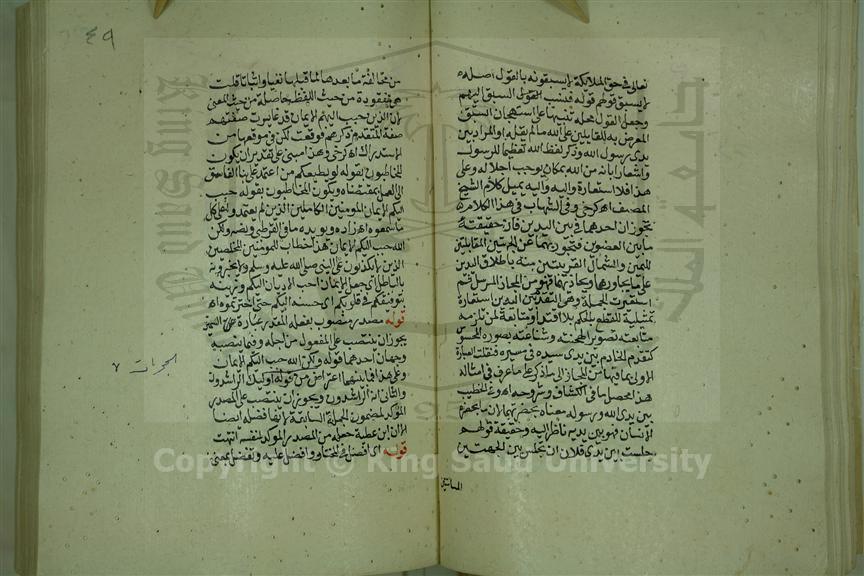 تعالى في حق الملائكة لا يسبقونه بالقول اصله
لا يسبق قولهم قوله فنسب القول السبق اليهم
وجعل القول محله تنبيها على استهجان السبق
المعرض به للقايلين على الله ما لم يقله او المراد بين
يدى رسول الله وذكر لفظ الله تعظيما للرسول
واشعارا بانه من الله بمكان يوجب اجلاله وعلى
هذا فلا استعارة واليه يميل كلام الشيخ
المصنف اه كرخى وفى الشهاب فى هذا الكلام
تجوزان احدهما فى بين اليدين فان حقيقته
ما بين العضوين فتجوز بهما عن الجهتين المقابلتين
لليمين والشمال القريبتين منه باطلاق اليدين
على ما يجاورهما ويحاذيهما فهو من المجاز المرسل ثم
استعيرت الجملة وهى التقدم بين اليدين استعارة
تمثيلية للقطع بالحكم بلا اقتداء ومتابعة لمن تلزمه
متابعته تصويرا لهجنته وشناعته بصورة المحسوس
كتقدم الخادم بين يدى سيده فى مسيره فنقلت العبارة
الاولى بما فيها من المجاز الى ما ذكر على ما عرف فى امثاله
هذا محصل ما فى الكشاف وشروحه اه وفى الخطيب
بين يدى الله ورسوله معناه بحضرتهما لان ما بحضرة
الانسان فهو بين يديه ناظر اليه وحقيقة قولهم
جلست بين يدى فلان ان تجلس بين الجهتين
٤٩
من مخالفة ما بعدها لما قبلها نفيا واثباتا قلت
هى مفقودة من حيث اللفظ حاصلة من حيث المعنى
لان الذين حبب اليهم الايمان قد غايرت صفتهم
صفة المتقدم ذكرهم فوقعت لكن فى موقعها من
الاستدراك اه كرخى وهذا مبنى على تقدير ان يكون
المخاطبون بقوله لو يطيعكم من اعتمد على نبا الفاسق
الى العمل بمقتضاه ويكون المخاطبون بقوله حبب
اليكم الايمان المؤمنين الكاملين الذين لم يعتمدوا على كل
ما سمعوه اه زاده ويؤيده ما فى القرطبى ونصه ولكن
الله حبب اليكم الايمان هذا خطاب للمؤمنين المخلصين
الذين لا يكذبون على النبى صلى الله عليه وسلم ولا يخبرونه
بالباطل اى جعل الايمان احب الاديان اليكم وزينه
بتوفيقكم فى قلوبكم اى حسنه اليكم حتى اخترتموه اه
قوله مصدر منصوب بفعله المقدر عبارة السمين
يجوز ان ينتصب على المفعول من اجله وفيما ينصبه
وجهان احدهما قوله ولكن الله حبب اليكم الايمان
وعلى هذا فما بينهما اعتراض من قوله اولئك هم الراشدون
والثانى انه الراشدون ويجوز ان ينتصب على المصدر
المؤكد لمضمون الجملة السابقة لانها فضل ايضا
الا ان ابن عطية جعله من المصدر المؤكد لنفسه انتهت
قوله اى افضل فى المختار وافضل عليه وتفضل بمعنى
الحجرات ٧
Copyright © King Saud University